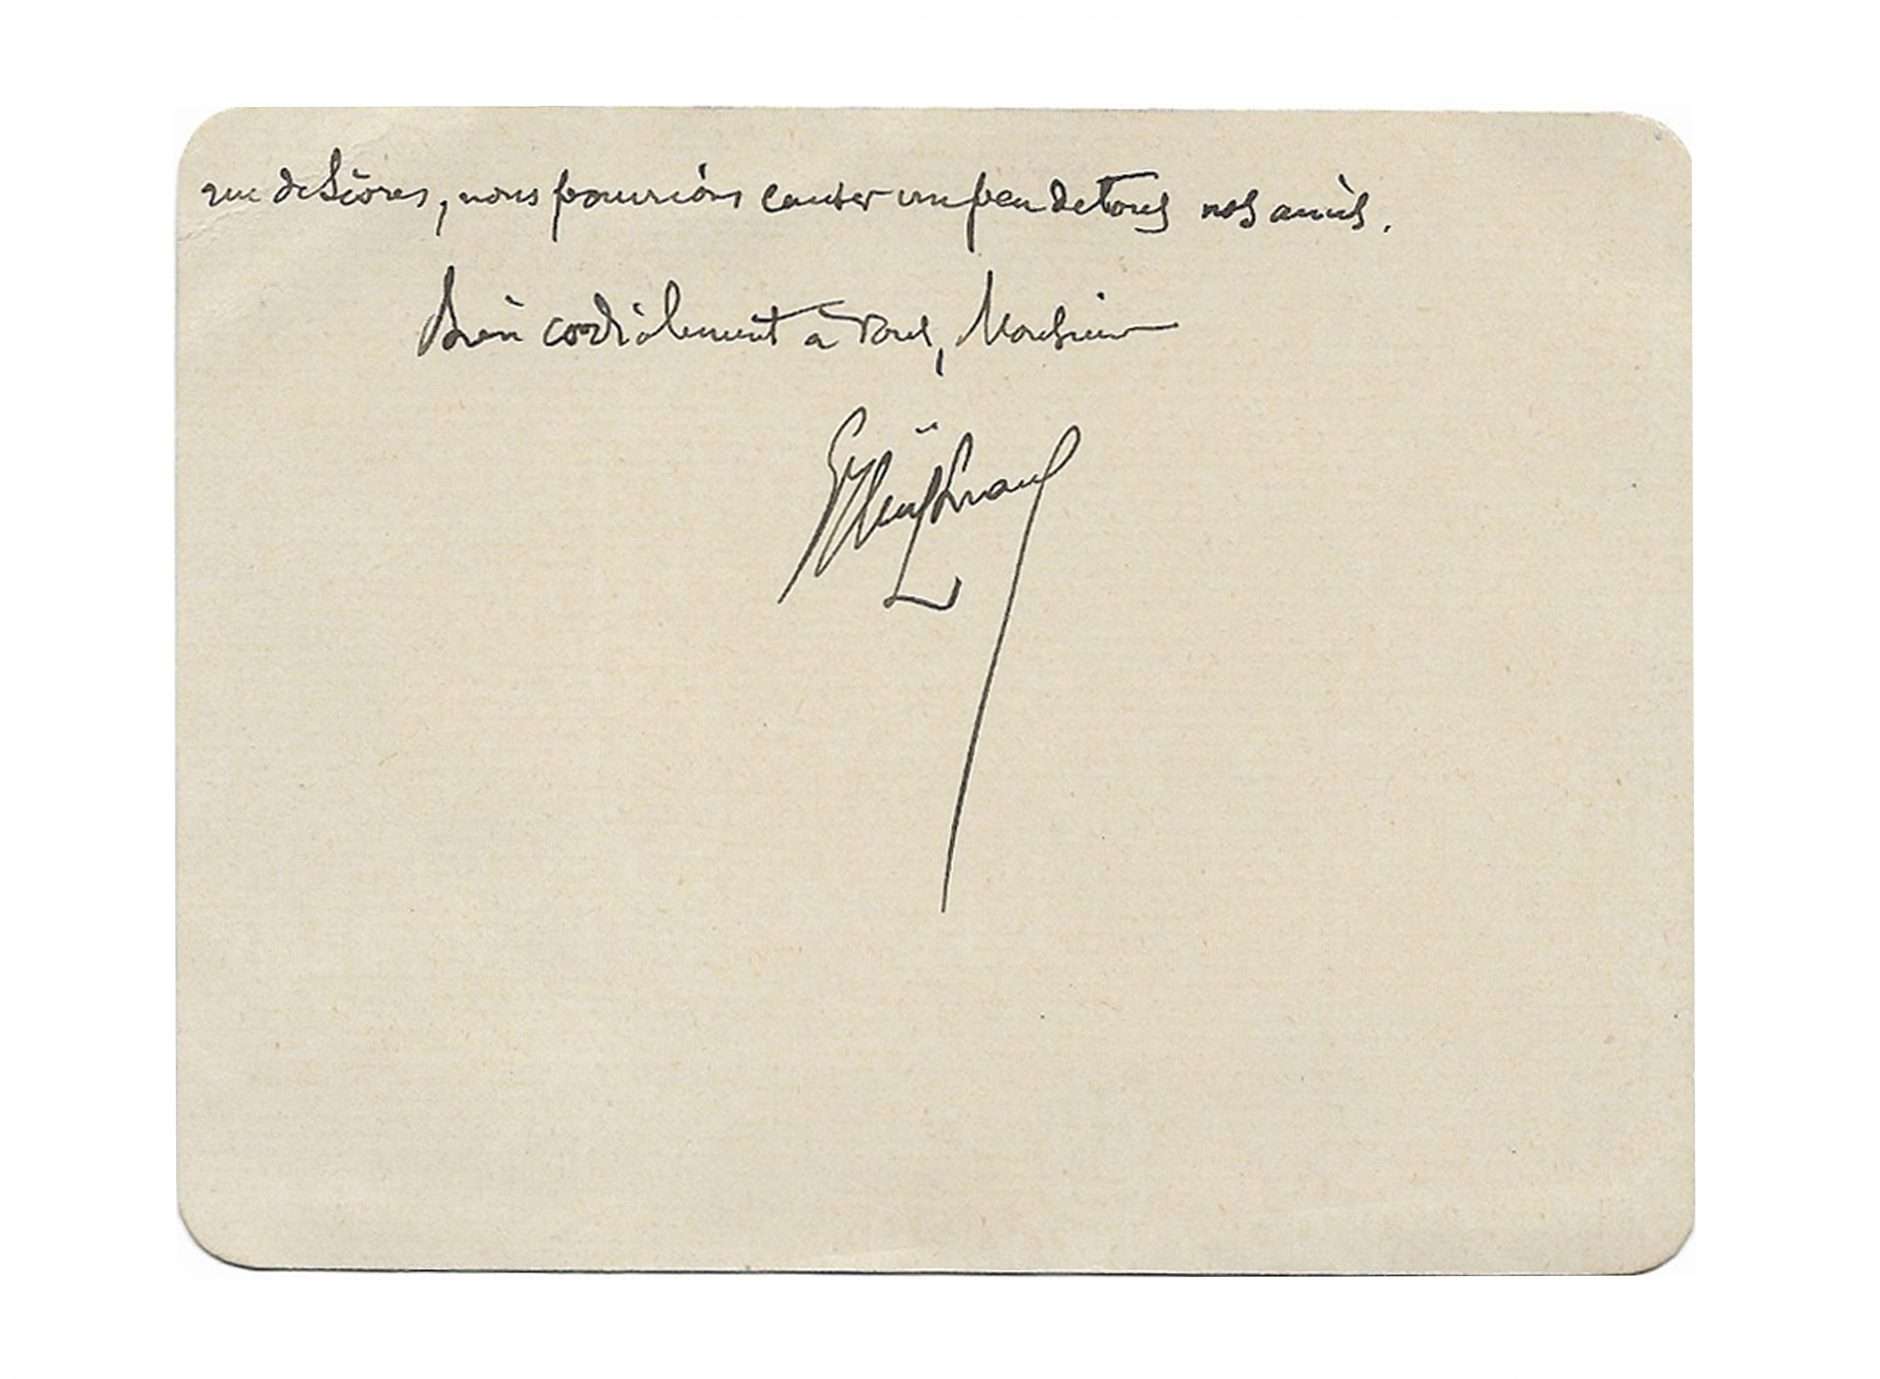 rue de Sèvres, nous pourrions causer un peu de tous nos amis.
Bien cordialement à vous, Monsieur